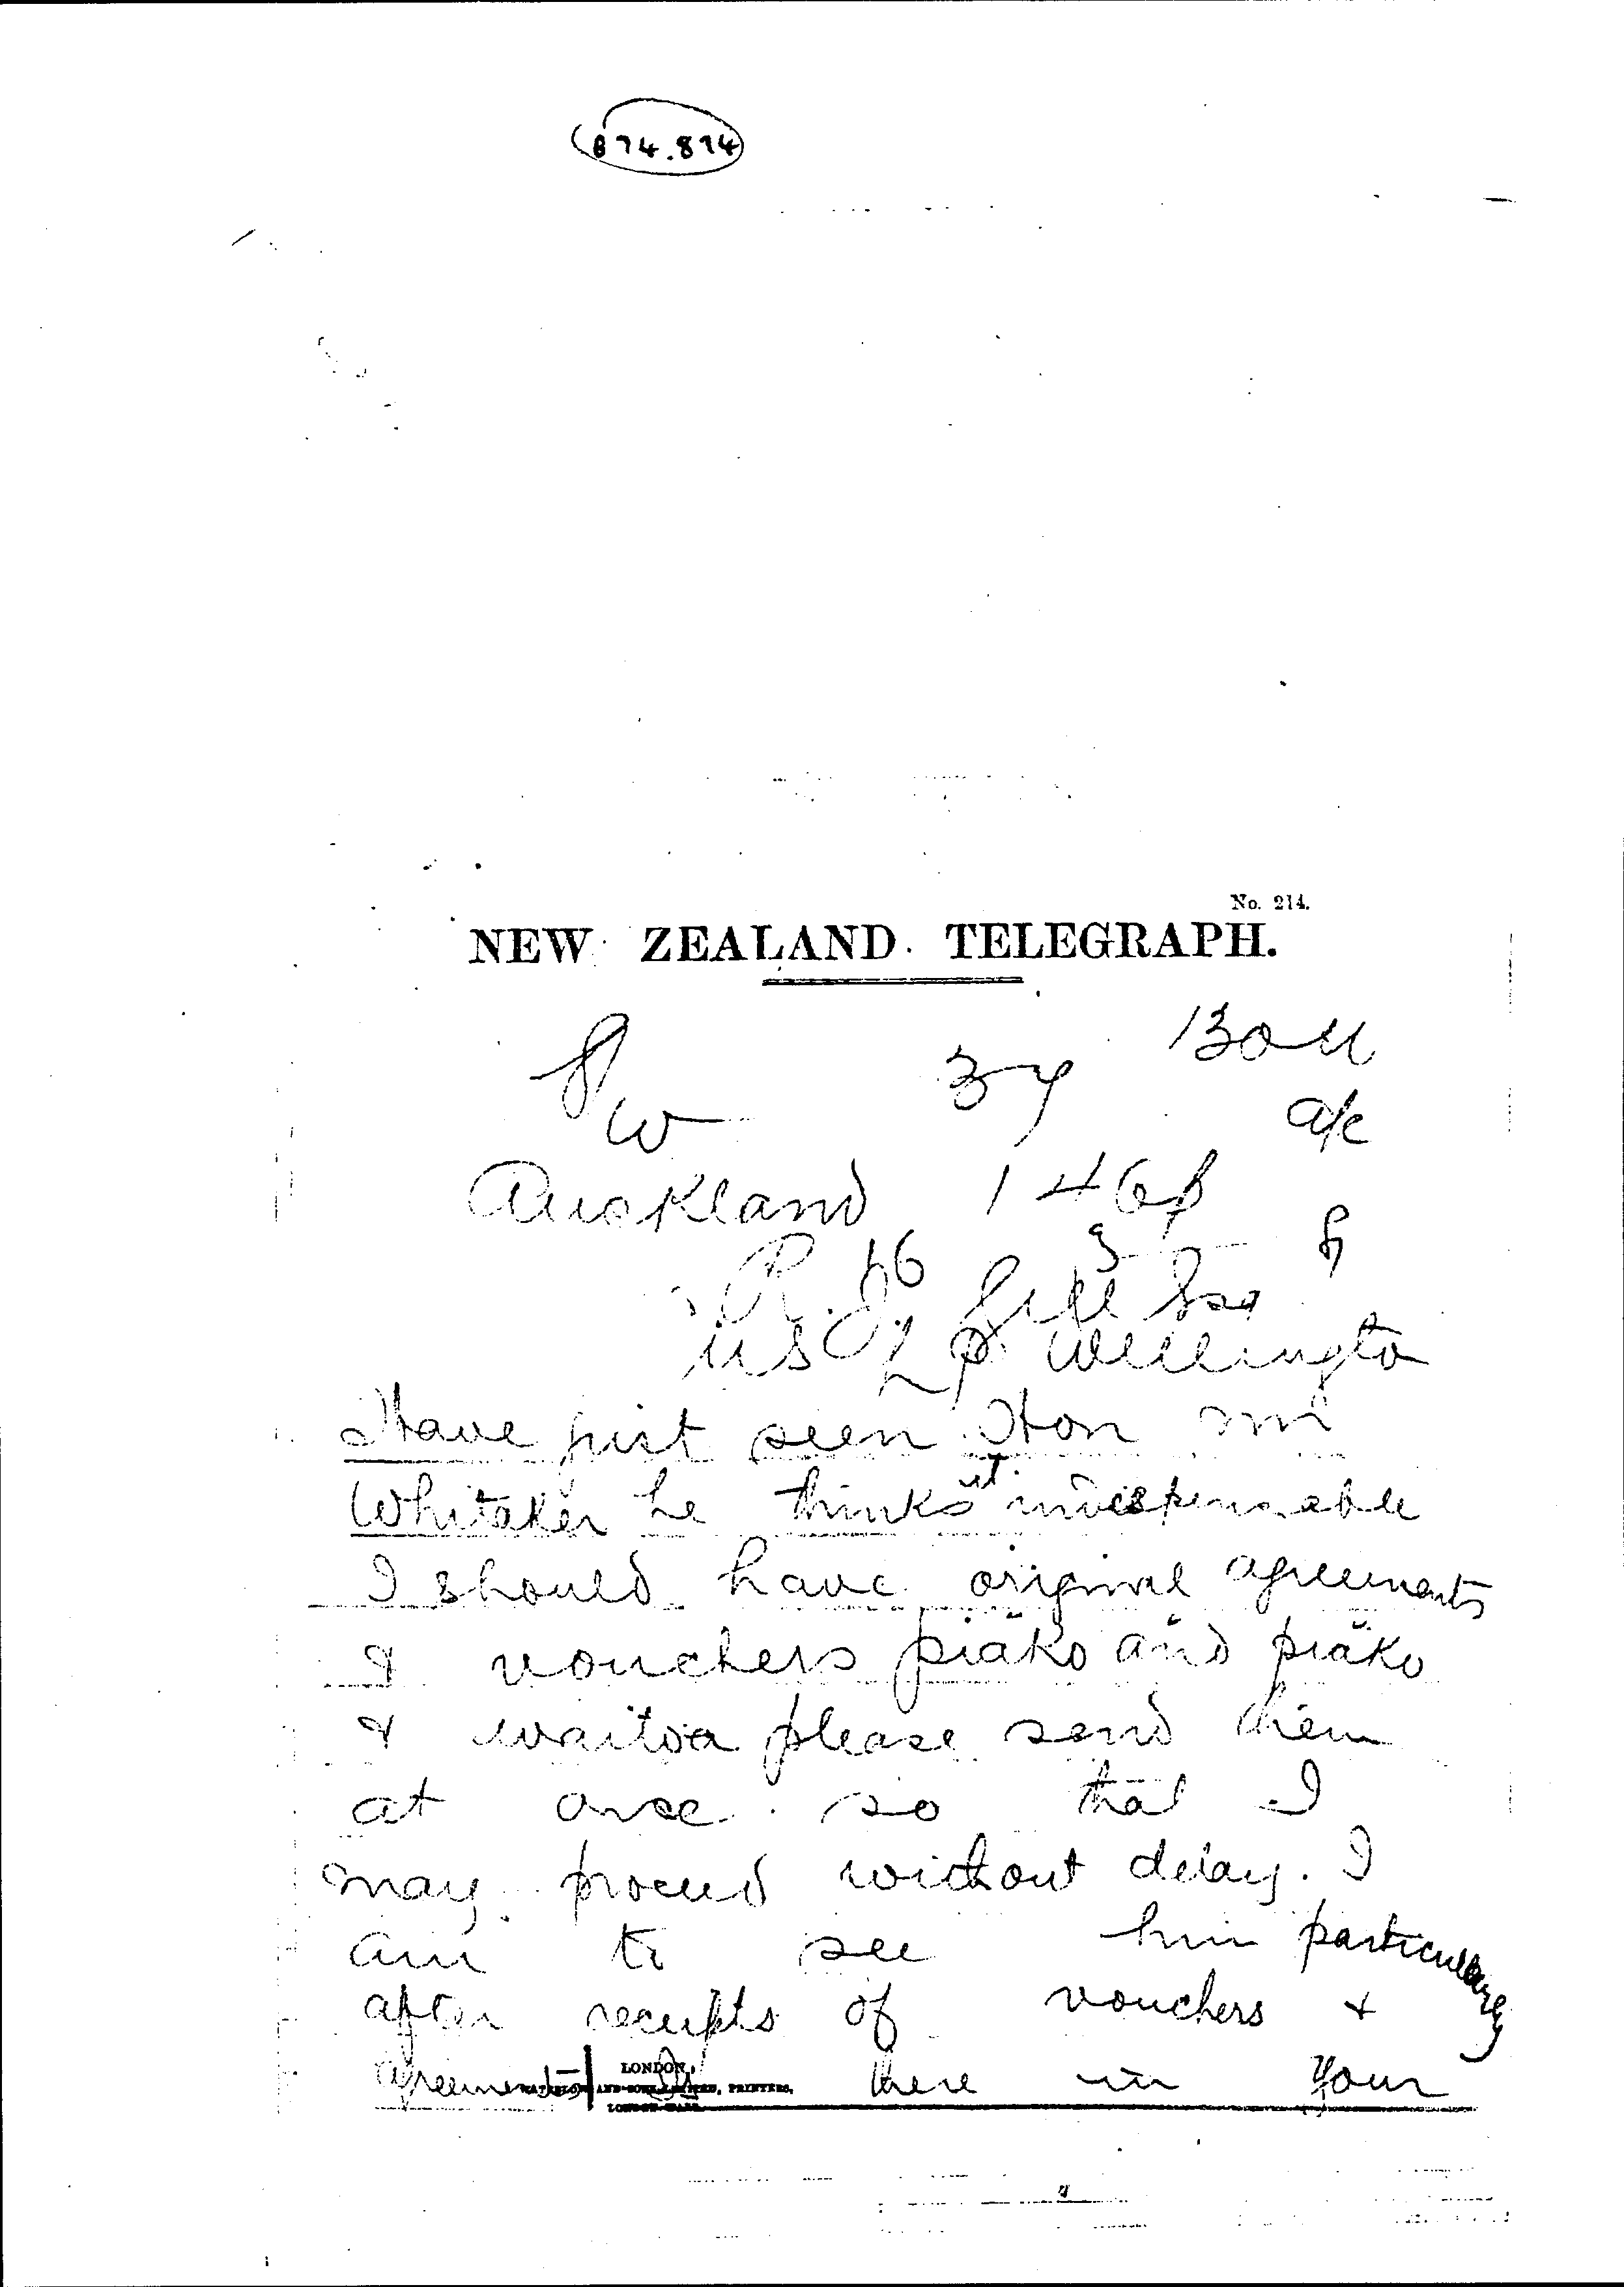 874.874
No. 214.
NEW ZEALAND TELEGRAPH.
W
a/c
Auckland
R. J. Gill Esq
U S L P Wellington
Have just seen Hon Mr
Whitaker he thinks it indispensable
I should have original agreements
& vouchers piako and piako
& waitoa please send them
at once so that I
may proceed without delay. I
am to see him particularly
after receipts of vouchers &
agreements there in your
LONDON
AND SONS LIMITED, PRINTERS,
LONDON WALL